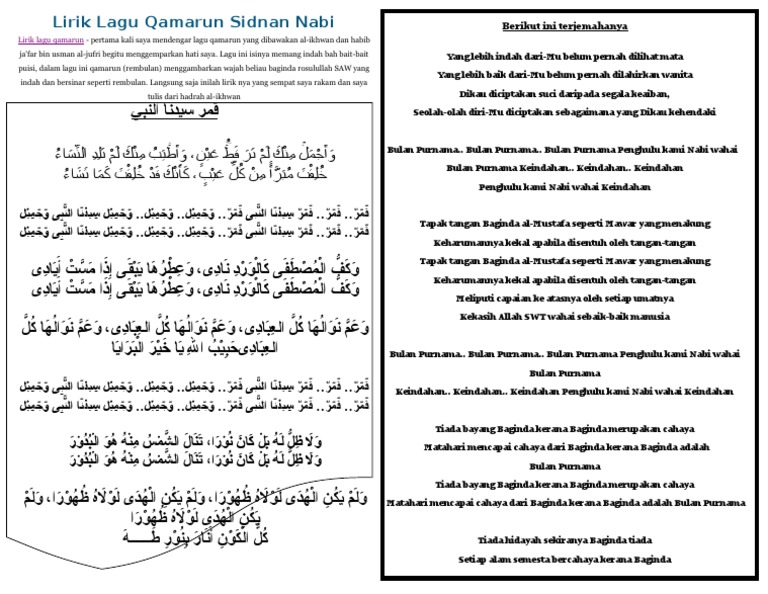 Lirik Lagu Qamarun Sidnan Nabi
Lirik lagu qamarun - pertama kali saya mendengar lagu qamarun yang dibawakan al-ikhwan dan habib
ja'far bin usman al-jufri begitu menggemparkan hati saya. Lagu ini isinya memang indah bah bait-bait
puisi, dalam lagu ini qamarun (rembulan) menggambarkan wajah beliau baginda rosulullah SAW yang
indah dan bersinar seperti rembulan. Langsung saja inilah lirik nya yang sempat saya rakam dan saya
tulis dari hadrah al-ikhwan
قمر سيدنا النبي
وَأَجْمَلُ مِنْكَ لَمْ تَرَ قَطُّ عَيْنٍ، وَأَطْيَبُ مِنْكَ لَمْ تَلِدِ النِّسَاءُ
خُلِقْتَ مُبَرَّأً مِنْ كُلِّ عَيْبٍ، كَأَنَّكَ قَدْ خُلِقْتَ كَمَا تَشَاءُ
قَمَرٌ.. قَمَرٌ.. قَمَرٌ سِيدْنَا النَّبِى قَمَرٌ.. وَجَمِيْل.. وَجَمِيْل.. وَجَمِيْل سِيدْنَا النَّبِى وَجَمِيْل
قَمَرٌ.. قَمَرٌ.. قَمَرٌ سِيدْنَا النَّبِى قَمَرٌ.. وَجَمِيْل.. وَجَمِيْل.. وَجَمِيْل سِيدْنَا النَّبِى وَجَمِيْل
وَكَفُّ الْمُصْطَفَى كَالْوَرْدِ نَادِى، وَعِطْرُ هَا يَبْقَى إِذَا مَسَّتْ أَيَادِى
وَكَفُّ الْمُصْطَفَى كَالْوَرْدِ نَادِى، وَعِطْرُ هَا يَبْقَى إِذَا مَسَّتْ أَيَادِى
وَعَمَّ نَوَالُهَا كُلَّ العِبَادِى، وَعَمَّ نَوَالُهَا كُلَّ العِبَادِى، وَعَمَّ نَوَالُهَا كُلَّ
العِبَادِى حَبِيْبُ اللهِ يَا خَيْرَ الْبَرَايَا
قَمَرٌ.. قَمَرٌ.. قَمَرٌ سِيدْنَا النَّبِى قَمَرٌ.. وَجَمِيْل.. وَجَمِيْل.. وَجَمِيْل سِيدْنَا النَّبِى وَجَمِيْل
قَمَرٌ.. قَمَرٌ.. قَمَرٌ سِيدْنَا النَّبِى قَمَرٌ.. وَجَمِيْل.. وَجَمِيْل.. وَجَمِيْل سِيدْنَا النَّبِى وَجَمِيْل
وَلَا ظِلُّ لَهُ بَلْ كَانَ نُوْرًا، تَنَالَ الشَّمْسُ مِنْهُ هُوَ الْبُدُوْرَ
وَلَا ظِلُّ لَهُ بَلْ كَانَ نُوْرًا، تَنَالَ الشَّمْسُ مِنْهُ هُوَ الْبُدُوْرَ
وَلَمْ يَكُنِ الْهُدَى لَوْلَاهُ ظُهُوْرًا، وَلَمْ يَكُنِ الْهُدَى لَوْلَاهُ ظُهُوْرًا، وَلَمْ
يَكُنِ الْهُدَى لَوْلَاهُ ظُهُوْرَا
كُلُّ الْكَوْنِ أَنَارَ بِنُوْرِ طَــــهَ
Berikut ini terjemahanya
Yang lebih indah dari-Mu belum pernah dilihat mata
Yang lebih baik dari-Mu belum pernah dilahirkan wanita
Dikau diciptakan suci daripada segala keaiban,
Seolah-olah diri-Mu diciptakan sebagaimana yang Dikau kehendaki
Bulan Purnama.. Bulan Purnama.. Bulan Purnama Penghulu kami Nabi wahai
Bulan Purnama Keindahan.. Keindahan.. Keindahan
Penghulu kami Nabi wahai Keindahan
Tapak tangan Baginda al-Mustafa seperti Mawar yang menakung
Keharumannya kekal apabila disentuh oleh tangan-tangan
Tapak tangan Baginda al-Mustafa seperti Mawar yang menakung
Keharumannya kekal apabila disentuh oleh tangan-tangan
Meliputi capaian ke atasnya oleh setiap umatnya
Kekasih Allah SWT wahai sebaik-baik manusia
Bulan Purnama.. Bulan Purnama.. Bulan Purnama Penghulu kami Nabi wahai
Bulan Purnama
Keindahan.. Keindahan.. Keindahan Penghulu kami Nabi wahai Keindahan
Tiada bayang Baginda kerana Baginda merupakan cahaya
Matahari mencapai cahaya dari Baginda kerana Baginda adalah
Bulan Purnama
Tiada bayang Baginda kerana Baginda merupakan cahaya
Matahari mencapai cahaya dari Baginda kerana Baginda adalah Bulan Purnama
Tiada hidayah sekiranya Baginda tiada
Setiap alam semesta bercahaya kerana Baginda